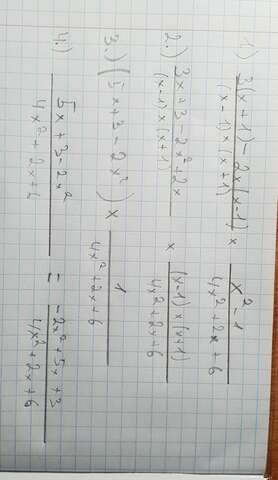 1) 3(x+1)-2x(x-1) / (x-1)×(x+1) × x²-1 / 4x²+2x+6
2.) 3x+3-2x²+2x / (x-1)×(x+1) × (x-1)×(x+1) / 4x²+2x+6
3.) (5x+3-2x²) × 1 / 4x²+2x+6
4.) 5x+3-2x² / 4x²+2x+6 = -2x²+5x+3 / 4x²+2x+6